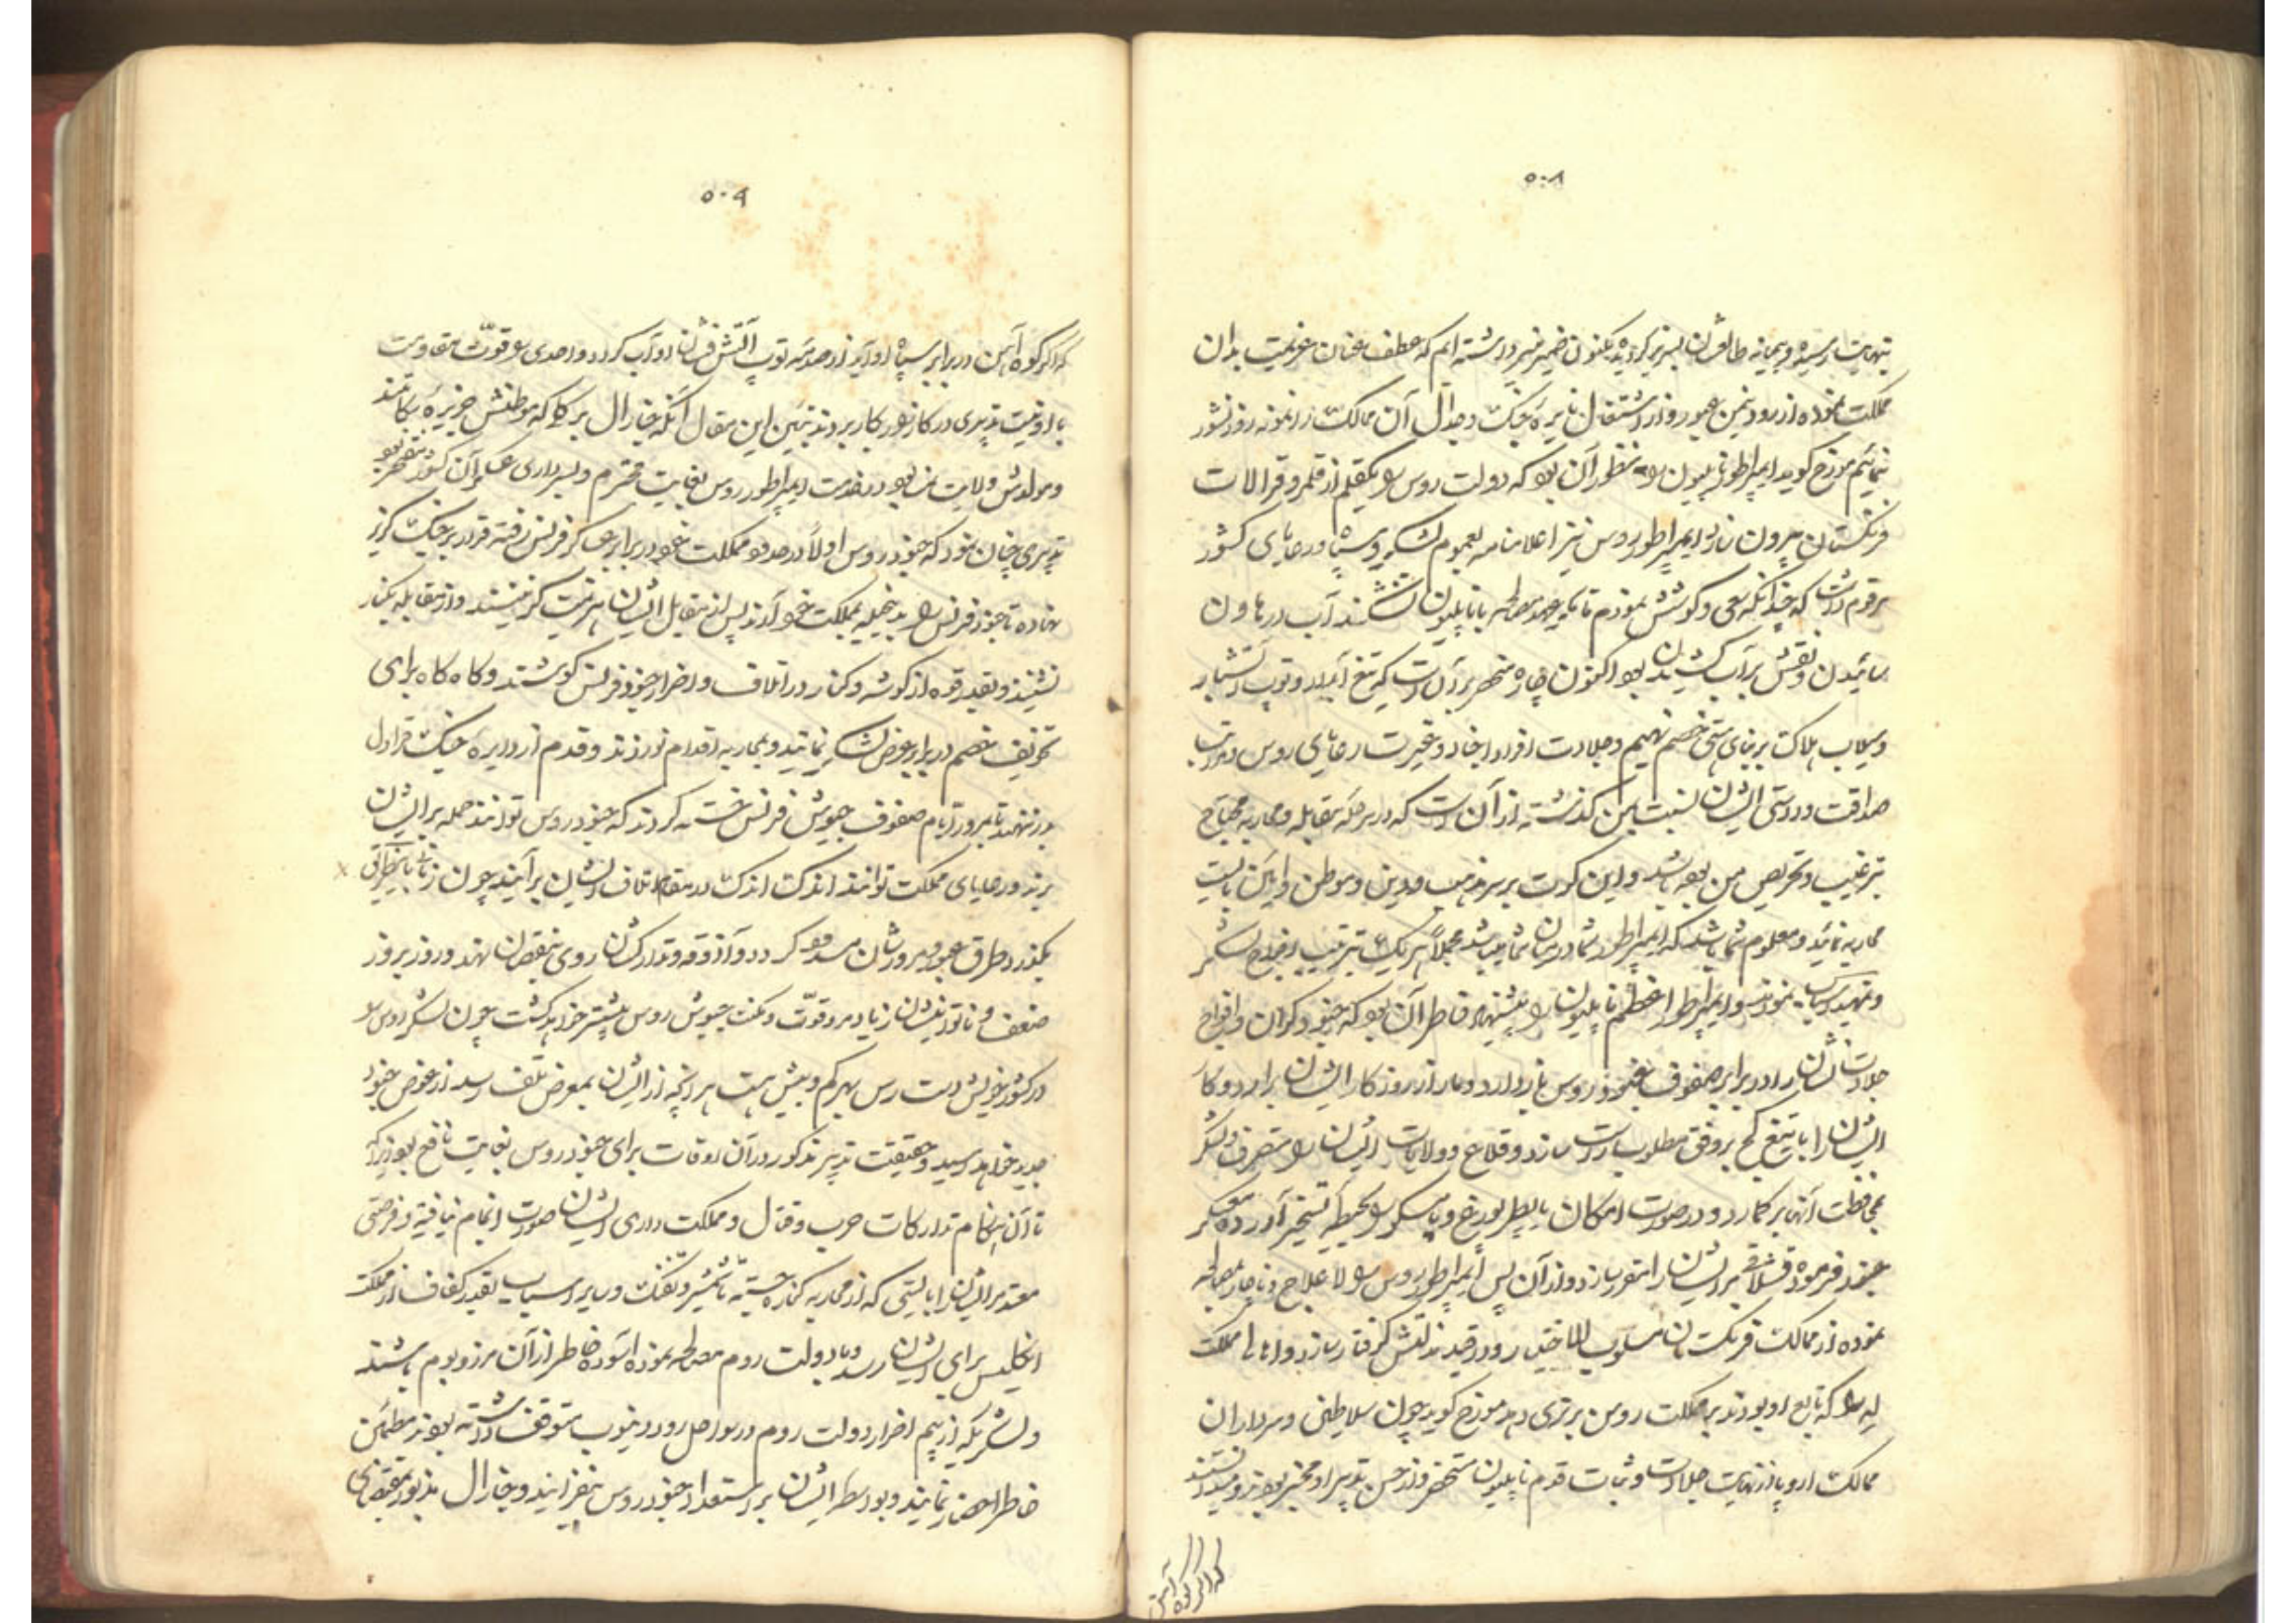 ۵۰۸
بنهایت رسیده و پیمانه طالعشان لبریز گردیده یکنون ضمیر منیر داشته ایم که عطف عنان عزیمت بدان
مملکت نموده از رود نیمن عبور و از اشتعال نایره جنگ و جدال آن ممالک را نمونه روز نشور
نمائیم مورخ گوید ایمپراطور ناپلیون را منظور آن بود که دولت روس را یکقلم از قلمرو قرالات
فرنگستان بیرون سازد ایمپراطور روس نیز اعلامنامه بعموم لشکر و سپاه و رعایای کشور
مرقوم داشت که چندانکه سعی و کوشش نمودم تا یکه عهد مصالحه با ناپلیون نشد آب در هاون
سائیدن و نقش بر آب کشیدن بود اکنون چاره منحصر بر آن است که تیغ آبدار و توپ آتشبار
و سیلاب هلاکت بر بنای هستی خصم نهیم و جلادت افراد اجناد و غیرت رعایای روس و مراتب
صداقت و درستی ایشان نسبت بمن گذشته از آن است که در معرکه مقابله و محاربه محتاج
بترغیب و تحریص من بوده باشد و این کرت بر سر مذهب و دین و موطن و اماکن بایست
محاربه نمائید و معلوم شما باشد که ایمپراطور شما در میان شما میباشد مجملاً هریک بترتیب افواج لشکر
و تمهید اسباب نمودند و ایمپراطور اعظم ناپلیون را پیشنهاد خاطر آن بود که جنود گران و افواج
جلادت نشان را در برابر صفوف جنود روس باز دارد و دمار از روزگار ایشان برآرد و کار
ایشان را با تیغ کج بر وفق مطلوب راست سازد و قلاع و ولایات ایشان را متصرف و لشکر
بمحافظت آنها بر گمارد و در صورت امکان با پطربورغ و یا مسکو را بحیطه تسخیر آورده معسکر
جنود فرموده قشلاقی برای ایشان را مقرر سازد و از آن پس ایمپراطور روس را لاعلاج و ناچار مصالحه
نموده از ممالک فرنگستان مسلوب المداخله و در قید بندگیش گرفتار سازد و اهالی مملکت
له را که تابع او بودند بر مملکت روس برتری دهد مورخ گوید چون سلاطین و سرداران
ممالک اروپا از نهایت جلادت و ثبات قوم ناپلیون مستحضر و از حسن تدبیر او مخبر بودند و میدانستند
که اگر کوه آهن
۵۰۹
که اگر کوه آهن در برابر سپاه او آید از صدمه توپ آتش فشان او آب گردد و احدی را قوت مقاومت
با او نیست تدبیری در کار او بکار بردند تبیین این مقال آنکه جنرال برکلی که موطنش جزیره بریتانیا
و مولدش ولایت نمسا بود در خدمت ایمپراطور روس بغایت محترم و بسرداری عساکر آن کشور مفتخر بود
تدبیری چنان نمود که جنود روس اولاً در حدود مملکت خود در برابر عساکر فرنس رفته قرار بر جنگ گریز
نهاده تا جنود فرنس را بدین حیله بمملکت خود آرند پس از مقابل ایشان هزیمت گزینند و از مقابله بکنار
نشینند و بقدر قوه از گوشه و کنار در اتلاف و اضرار جنود فرنس کوشند و گاه گاه برای
تخویف خصم در برابر عرض لشکر نمایند و بمحاربه اقدام نورزند و قدم از دایره جنگ قراول
بدر ننهند تا بمرور ایام صفوف جیوش فرنس خسته گردند که جنود روس توانند حمله بر ایشان
برند و رعایای مملکت توانند اندک اندک در مقام اتلاف ایشان برآیند چون زمانی باینطریق
بگذرد و طرق عبور و مرورشان مسدود گردد و آذوقه و تدارکشان روی بنقصان نهد و روز بروز
ضعف و ناتوانیشان زیاده و قوت و مکنت جیوش روس بیشتر خواهد گشت چون لشکر روس را
در کشور خویش دست رس بهر کم و بیش هست هر آنچه از ایشان بمعرض تلف رسد از عوض جنود
جدید خواهد رسید و حقیقت تدبیر مذکور در آن اوقات برای جنود روس بغایت نافع بود زیرا که
تا آن هنگام تدارکات حرب و قتال و مملکت داری ایشان صورت اتمام نیافته و فرصتی
معتد بر ایشان را بایستی که از محاربه کناره جسته تا شمشیر و تفنگ و سایر اسباب بقدر کفاف از مملکت
انگلیس برای ایشان رسد و با دولت روم مصالحه نموده آسوده خاطر از آن مرز و بوم باشند
و لشکریکه از بیم اضرار دولت روم در سواحل رود دنیوب متوقف داشته بودند مطمئن
خاطر احضار نمایند و بواسطه ایشان بر استعداد جنود روس بیفزایند و جنرال مذبور بمقتضای